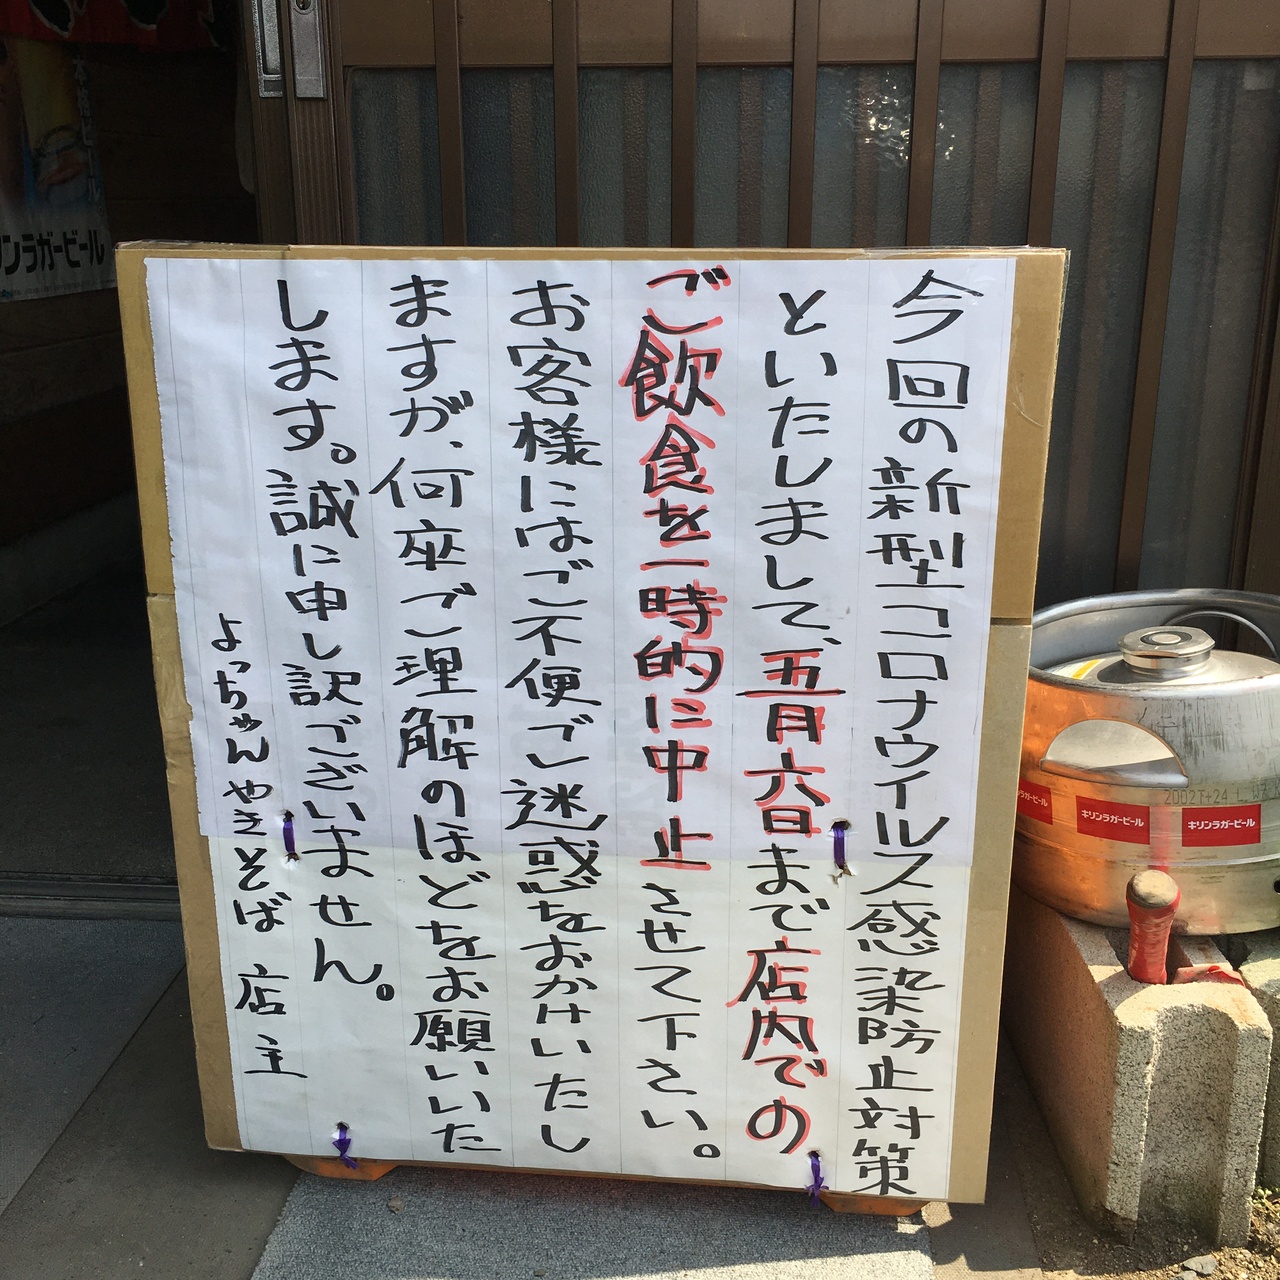 今回の新型コロナウイルス感染防止対策
といたしまして、五月六日まで店内での
ご飲食を一時的に中止させて下さい。
お客様にはご不便ご迷惑をおかけいたし
ますが、何卒ご理解のほどをお願いいた
します。誠に申し訳ございません。
よっちゃんやきそば 店主
キリンラガービール
キリンラガービール